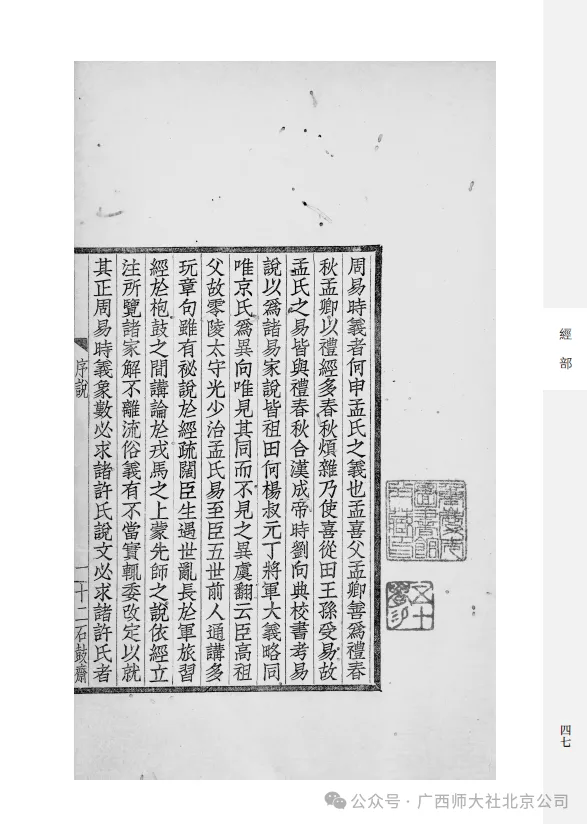 周易時義者何申孟氏之義也孟喜父孟卿善為禮春
秋孟卿以禮經多春秋煩雜乃使喜從田王孫受易故
孟氏之易皆與禮春秋合漢成帝時劉向典校書考易
說以為諸易家說皆祖田何楊叔元丁將軍大義略同
唯京氏為異向唯見其同而不見之異虞翻云臣高祖
父故零陵太守光少治孟氏易至臣五世前人通講多
玩章句雖有祕說於經疏闊臣生遇世亂長於軍旅習
經於枹鼓之間講論於戎馬之上蒙先師之說依經立
注所覽諸家解不離流俗義有不當實輒委改定以就
其正周易時義象數必求諸許氏說文必求諸許氏者
序說
一
十二石鼓齋
經部
四七
公众号·广西师大社北京公司